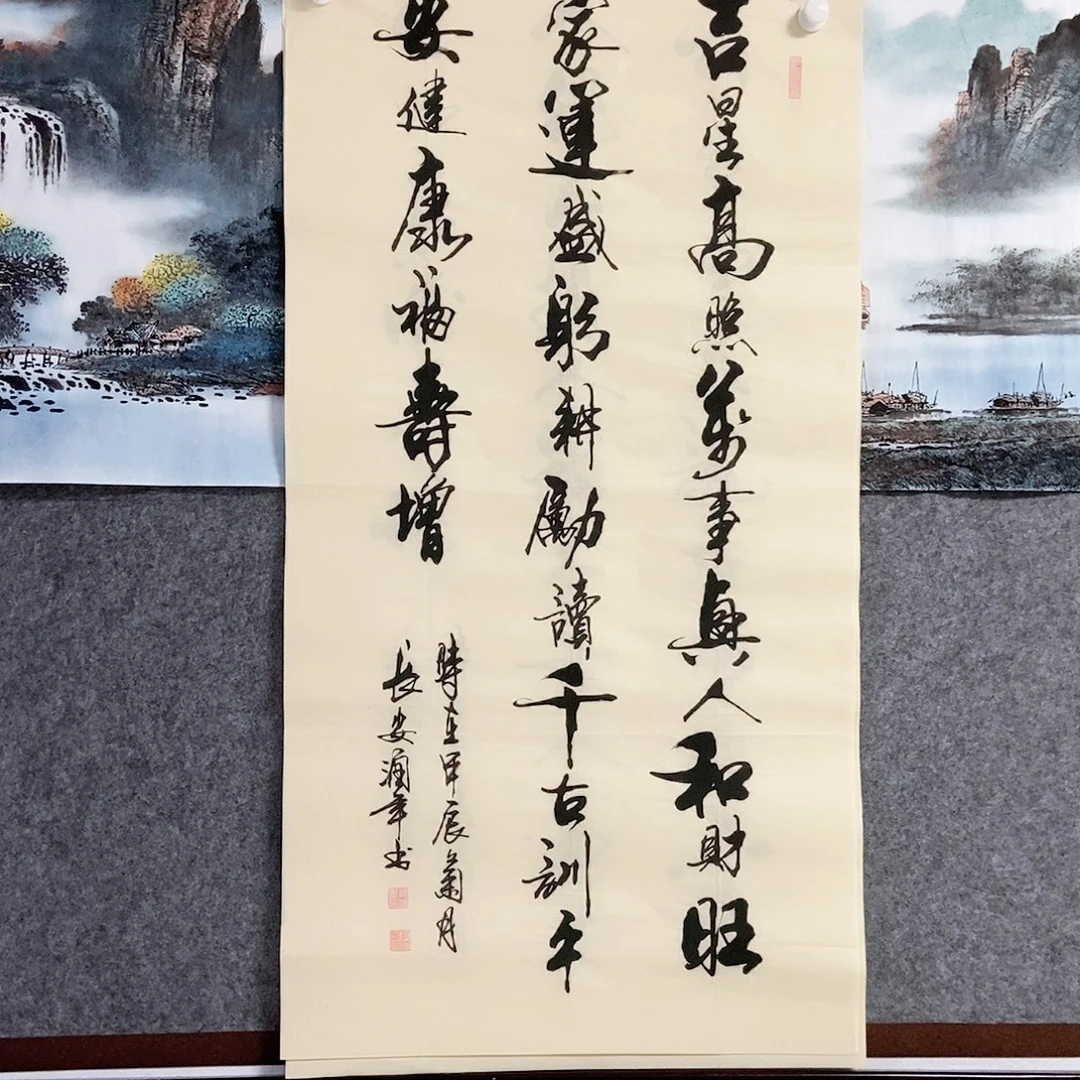 吉星高照萬事興人和財旺
家運盛躬耕勵讀千古訓平
安健康福壽增
時在甲辰菊月
長安潤年书